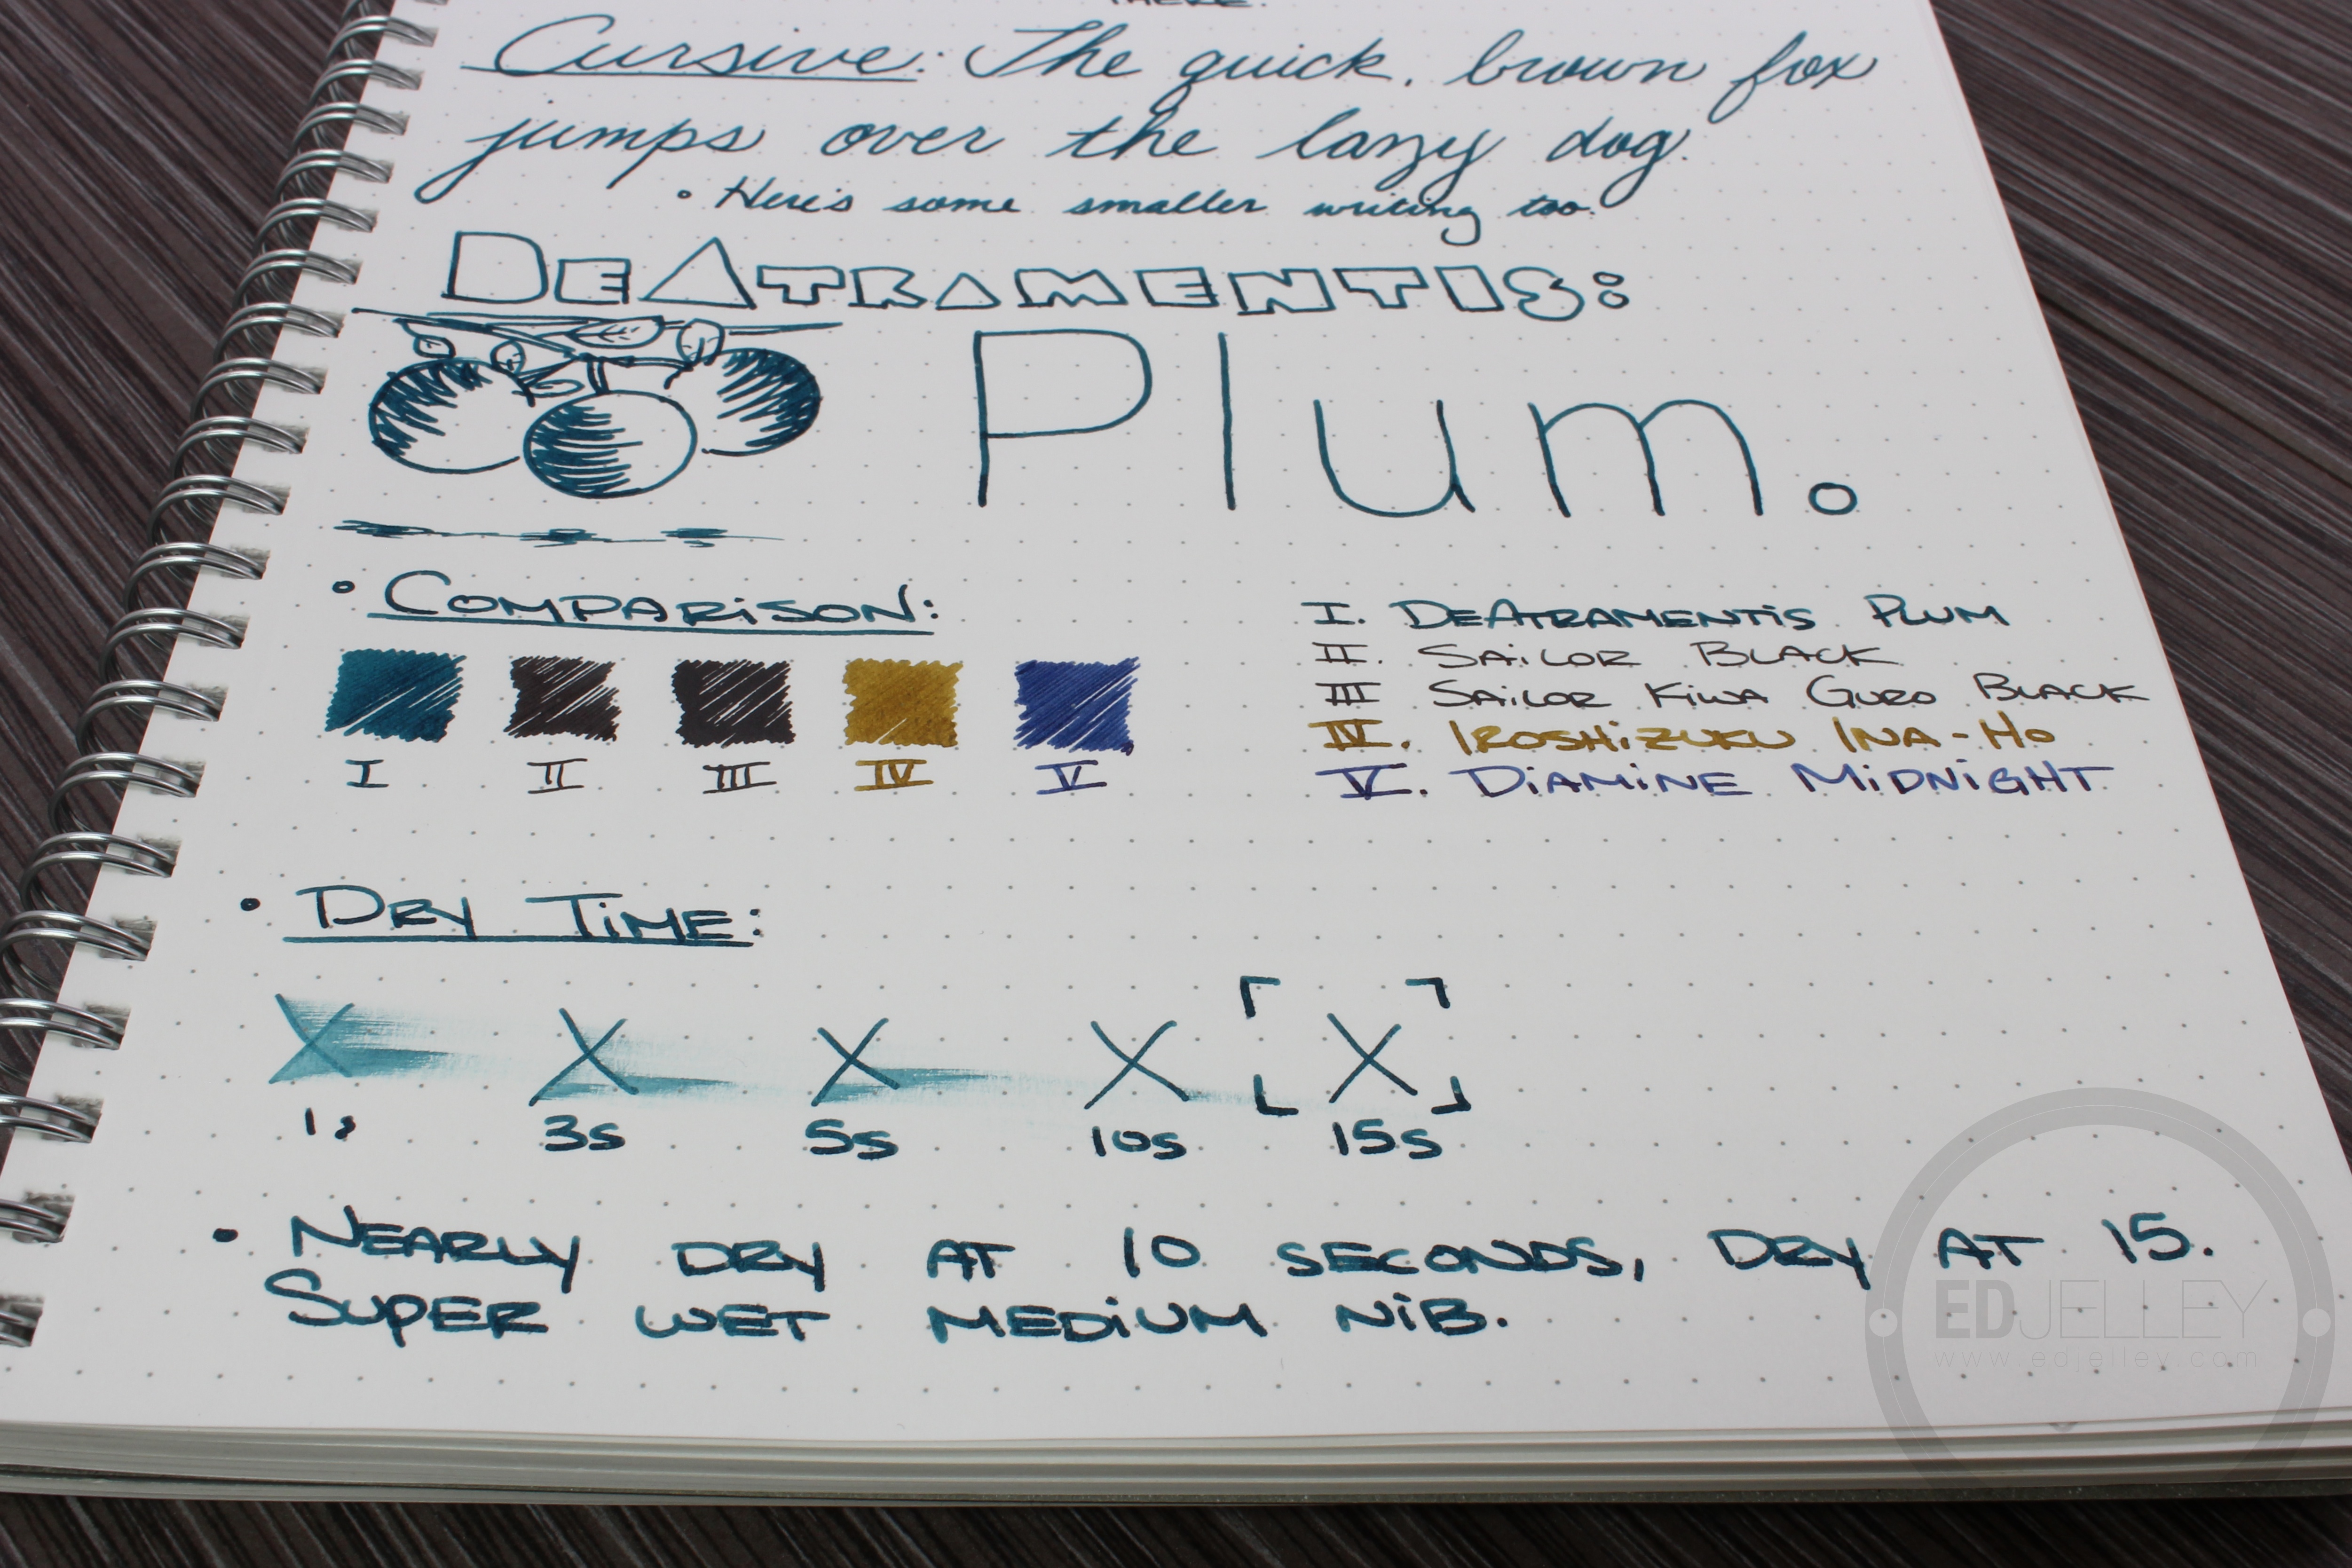 THERE.
Cursive: The quick, brown fox
jumps over the lazy dog.
• Here's some smaller writing too.
DeAtramentis:
Plum.
• Comparison:
I II III IV V
I. DeAtramentis Plum
II. Sailor Black
III Sailor Kiwa Guro Black
IV. Iroshizuku Ina-Ho
V. Diamine Midnight
• Dry Time:
X X X X X
1s 3s 5s 10s 15s
• Nearly dry at 10 seconds, dry at 15.
Super wet medium nib.
EDJELLEY
www.edjelley.com